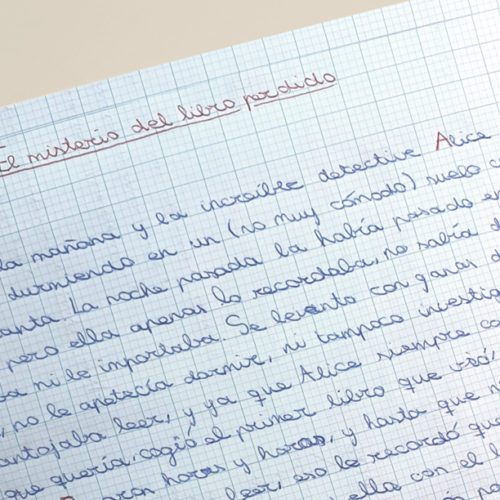 El misterio del libro perdido
la mañana y la increíble detective Alice
durmiendo en un (no muy cómodo) suelo
anta. La noche pasada la había pasado
pero ella apenas lo recordaba, no sabía
ni le importaba. Se levanto con ganas
, no le apetecía dormir, ni tampoco
antojaba leer, y ya que Alice siempre
que quería, cogió el primer libro que
horas y horas, y hasta que
leer, eso le recordó
ella con el